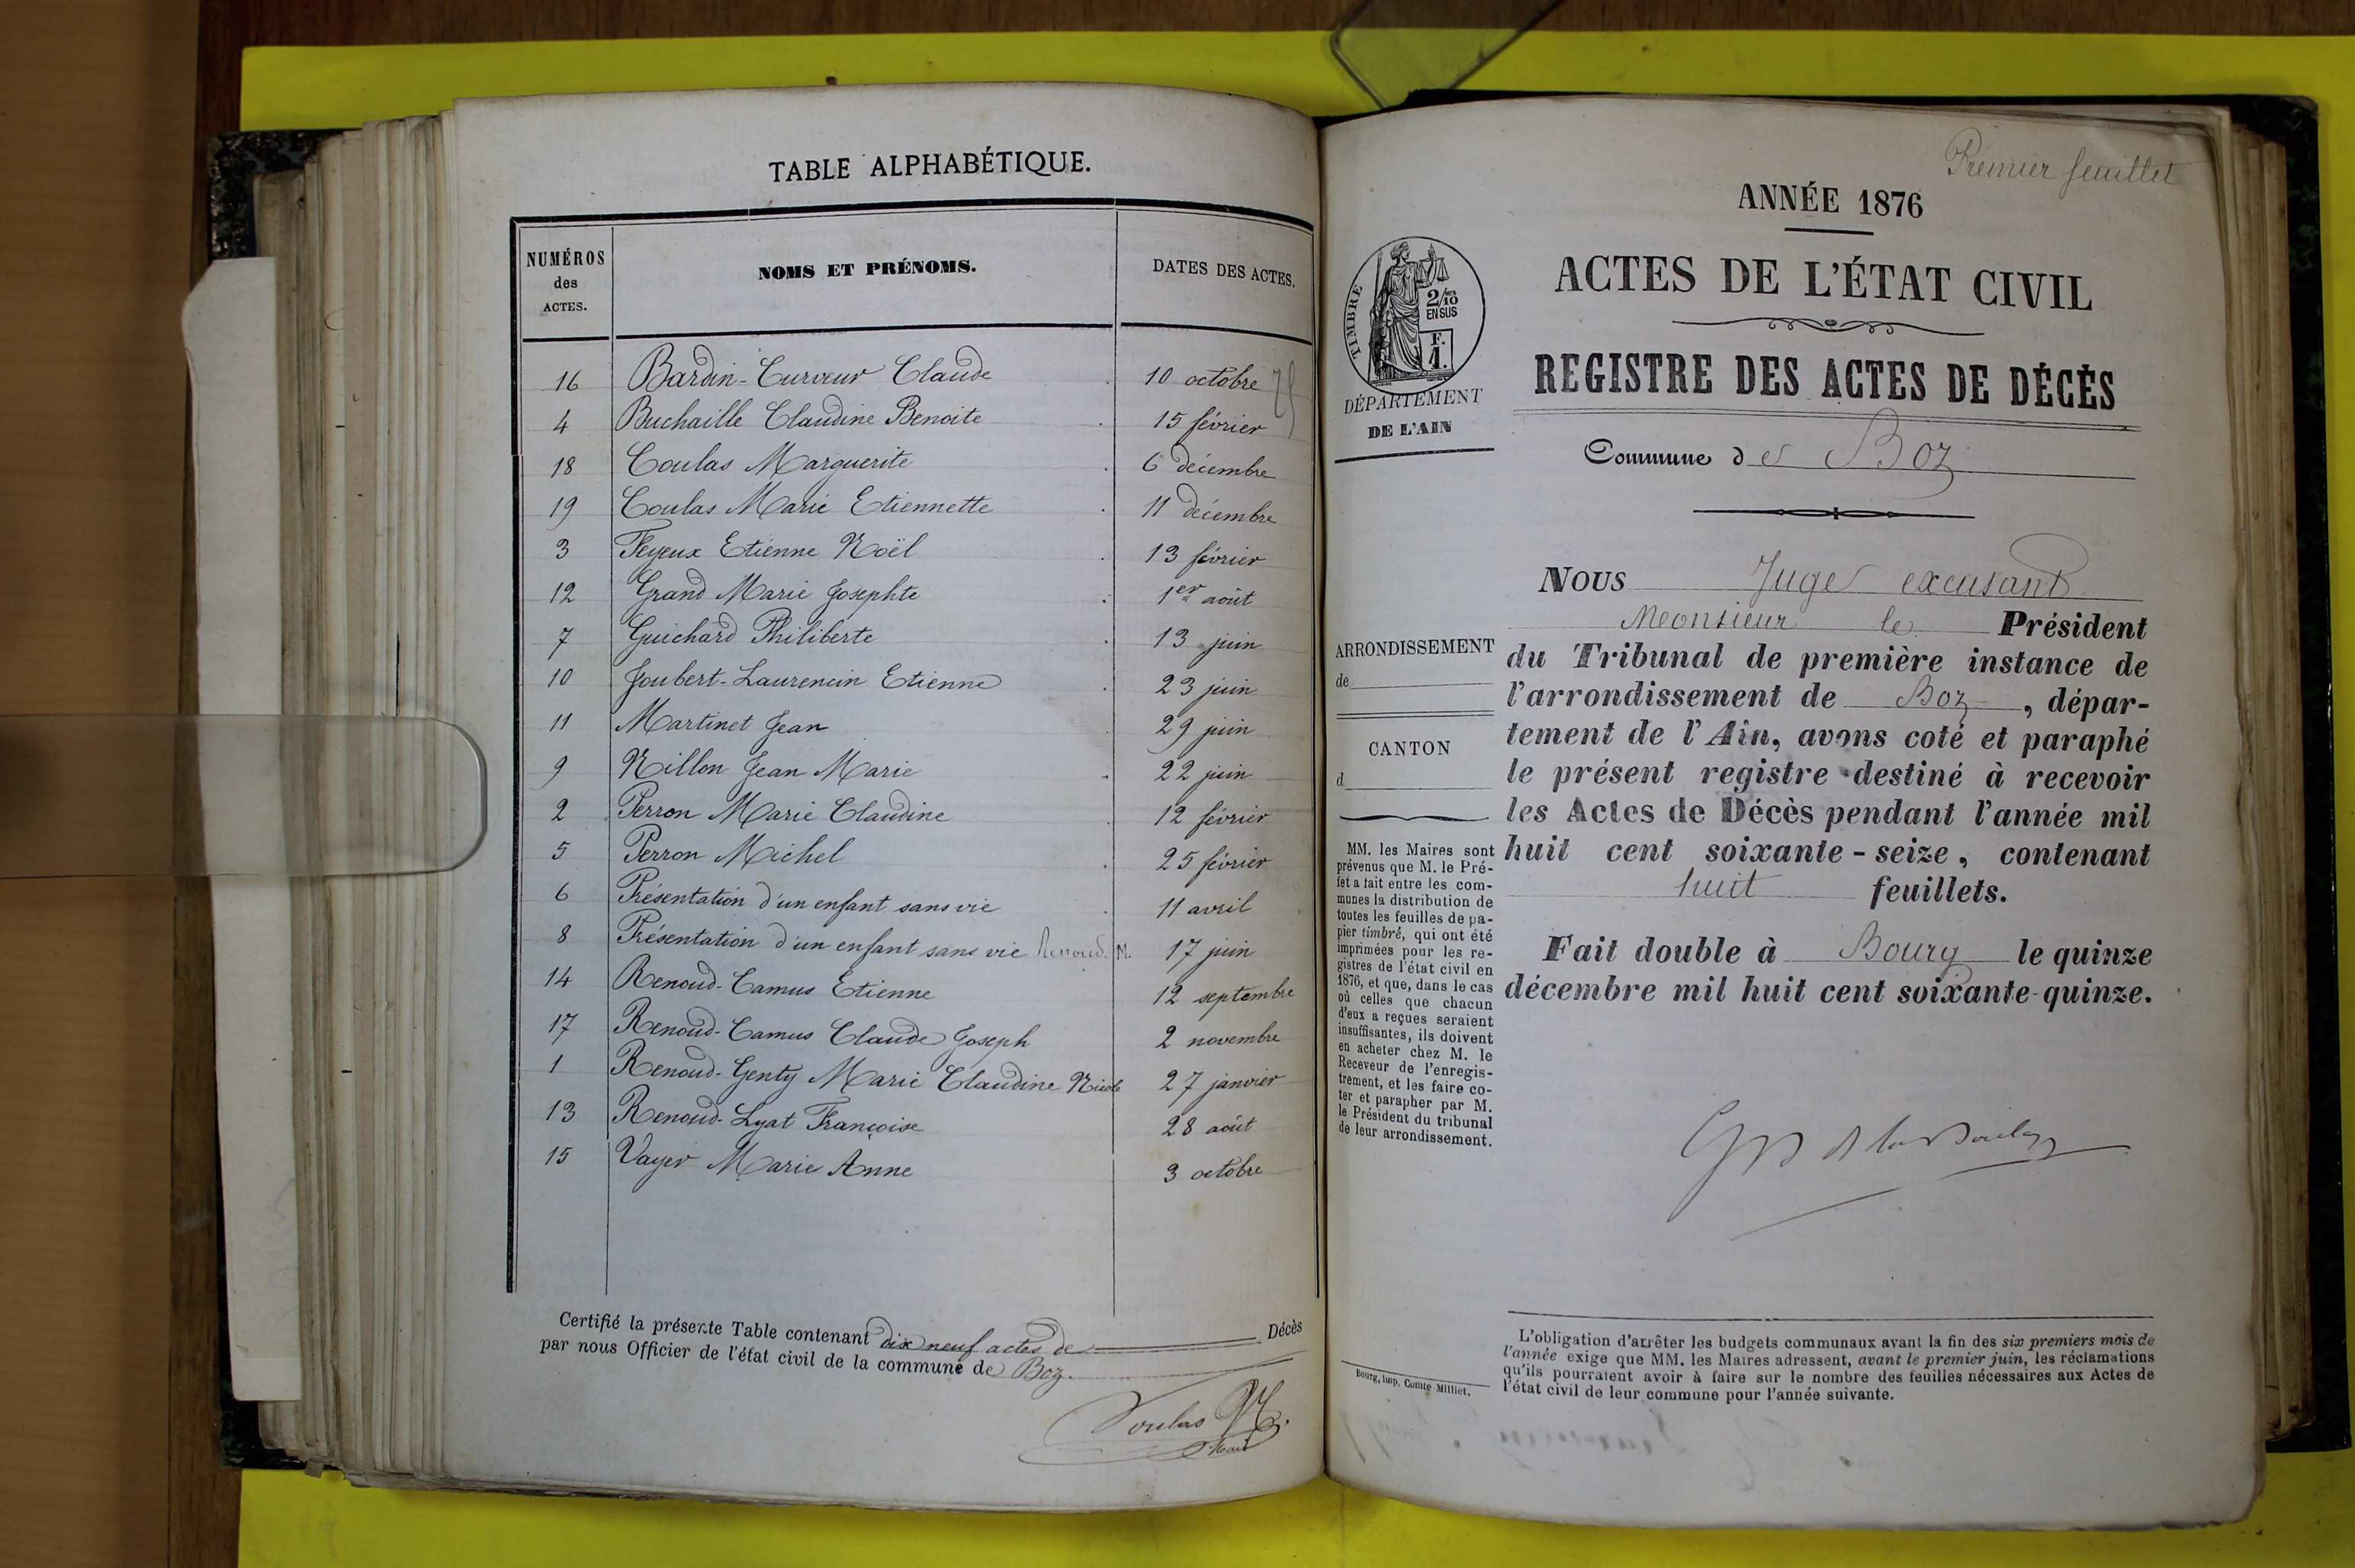 TABLE ALPHABÉTIQUE.
NUMÉROS des ACTES. NOMS ET PRÉNOMS. DATES DES ACTES.
16 Bardin-Curveur Claude 10 octobre 75
4 Buchaille Claudine Benoite 15 février
18 Coulas Marguerite 6 décembre
19 Coulas Marie Etiennette 11 décembre
3 Feyeux Etienne Noël 13 février
12 Grand Marie Josephte 1er août
7 Guichard Philiberte 13 juin
10 Joubert-Laurencin Etienne 23 juin
11 Martinet Jean 29 juin
9 Nillon Jean Marie 22 juin
2 Perron Marie Claudine 12 février
5 Perron Michel 25 février
6 Présentation d'un enfant sans vie 11 avril
8 Présentation d'un enfant sans vie Renoud. M. 17 juin
14 Renoud-Camus Etienne 12 septembre
17 Renoud-Camus Claude Joseph 2 novembre
1 Renoud-Genty Marie Claudine Nicole 27 janvier
13 Renoud-Lyat Françoise 28 août
15 Vayer Marie Anne 3 octobre
Certifié la présente Table contenant dix neuf actes de Décès
par nous Officier de l'état civil de la commune de Boz.
Coulas
Maire
Premier feuillet
ANNÉE 1876
ACTES DE L'ÉTAT CIVIL
REGISTRE DES ACTES DE DÉCÈS
Commune de Boz
TIMBRE
2/10 EN SUS
F. 1.
DÉPARTEMENT
DE L'AIN
ARRONDISSEMENT
de
CANTON
d
MM. les Maires sont
prévenus que M. le Pré-
fet a fait entre les com-
munes la distribution de
toutes les feuilles de pa-
pier timbré, qui ont été
imprimées pour les re-
gistres de l'état civil en
1876, et que, dans le cas
où celles que chacun
d'eux a reçues seraient
insuffisantes, ils doivent
en acheter chez M. le
Receveur de l'enregis-
trement, et les faire co-
ter et parapher par M.
le Président du tribunal
de leur arrondissement.
Nous Juge excusant
Monsieur le Président
du Tribunal de première instance de
l'arrondissement de Boz, dépar-
tement de l'Ain, avons coté et paraphé
le présent registre destiné à recevoir
les Actes de Décès pendant l'année mil
huit cent soixante-seize, contenant
huit feuillets.
Fait double à Bourg le quinze
décembre mil huit cent soixante-quinze.
L'obligation d'arrêter les budgets communaux avant la fin des six premiers mois de
l'année exige que MM. les Maires adressent, avant le premier juin, les réclamations
qu'ils pourraient avoir à faire sur le nombre des feuilles nécessaires aux Actes de
l'état civil de leur commune pour l'année suivante.
Bourg, imp. Comte-Milliet.